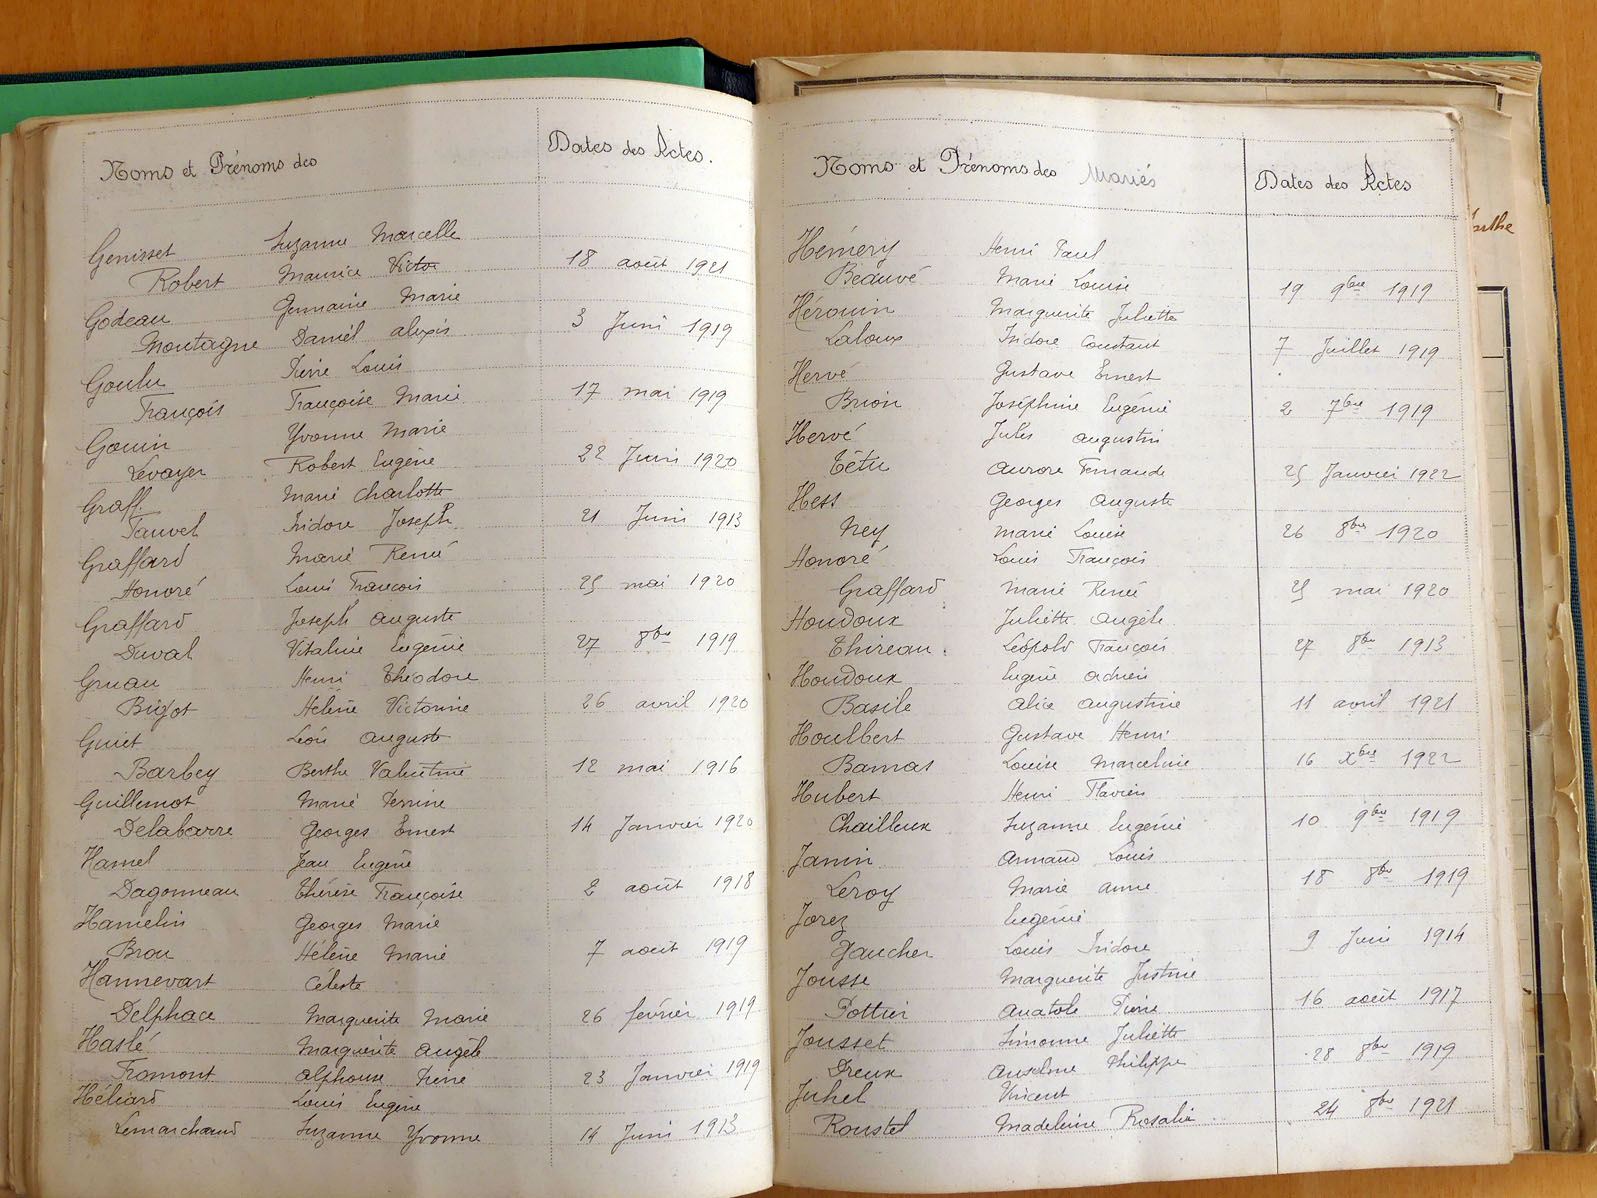 Noms et Prénoms des Dates des Actes.
Genisset Suzanne Marcelle
Robert Maurice Victor 18 août 1921
Godeau Germaine Marie
Montagne Daniel Alexis 3 Juin 1919
Goulu Pierre Louis
François Françoise Marie 17 mai 1919
Gouin Yvonne Marie
Levayer Robert Eugène 22 Juin 1920
Graff. Marie Charlotte
Fauvel Isidore Joseph 21 Juin 1913
Graffard Marie Renée
Honoré Louis François 25 mai 1920
Graffard Joseph Auguste
Duval Vitaline Eugénie 27 8bre 1919
Gruau Henri Théodore
Bigot Hélène Victorine 26 avril 1920
Guiet Léon Auguste
Barbey Berthe Valentine 12 mai 1916
Guillemot Marie Perrine
Delabarre Georges Ernest 14 Janvier 1920
Hamel Jean Eugène
Dagonneau Thérèse Françoise 2 août 1918
Hamelin Georges Marie
Brou Hélène Marie 7 août 1919
Hannevart Céleste
Delphace Marguerite Marie 26 février 1919
Haslé Marguerite Angèle
Fromont Alphonse Pierre 23 Janvier 1919
Héliard Louis Eugène
Lemarchand Suzanne Yvonne 14 Juin 1913
Noms et Prénoms des Mariés Dates des Actes
Hémery Henri Paul
Beauvé Marie Louise 19 9bre 1919
Hérouin Marguerite Juliette
Laloux Isidore Constant 7 Juillet 1919
Hervé Gustave Ernest
Brion Joséphine Eugénie 2 7bre 1919
Hervé Jules Augustin
Tétu Aurore Fernande 25 Janvier 1922
Hess Georges Auguste
Ney Marie Louise 26 8bre 1920
Honoré Louis François
Graffard Marie Renée 25 mai 1920
Houdoux Juliette Angèle
Thireau. Léopold François 27 8bre 1913
Houdoux Eugène Adrien
Basile Alice Augustine 11 avril 1921
Houlbert Gustave Henri
Bamas Louise Marceline 16 Xbre 1922
Hubert Henri Flavien
Chailleux Suzanne Eugénie 10 9bre 1919
Jamin Armand Louis
Leroy Marie Anne 18 8bre 1919
Jorez Eugénie
Gaucher Louis Isidore 9 Juin 1914
Jousse Marguerite Justine
Pottier Anatole Pierre 16 août 1917
Jousset Simonne Juliette
Dreux Anselme Philippe 28 8bre 1919
Juhel Vincent
Roustel Madeleine Rosalie 24 8bre 1921